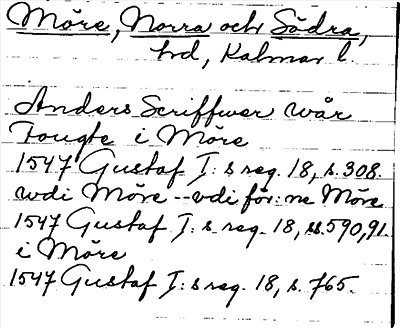 Möre, Norra och Södra,
hd, Kalmar l.
Anders Scriffwer wår
Fougte i Möre
1547 Gustaf I:s reg. 18, s. 308.
wdi Möre -- vdi för:ne Möre
1547 Gustaf I:s reg. 18, ss. 590,91.
i Möre
1547 Gustaf I:s reg. 18, s. 765.